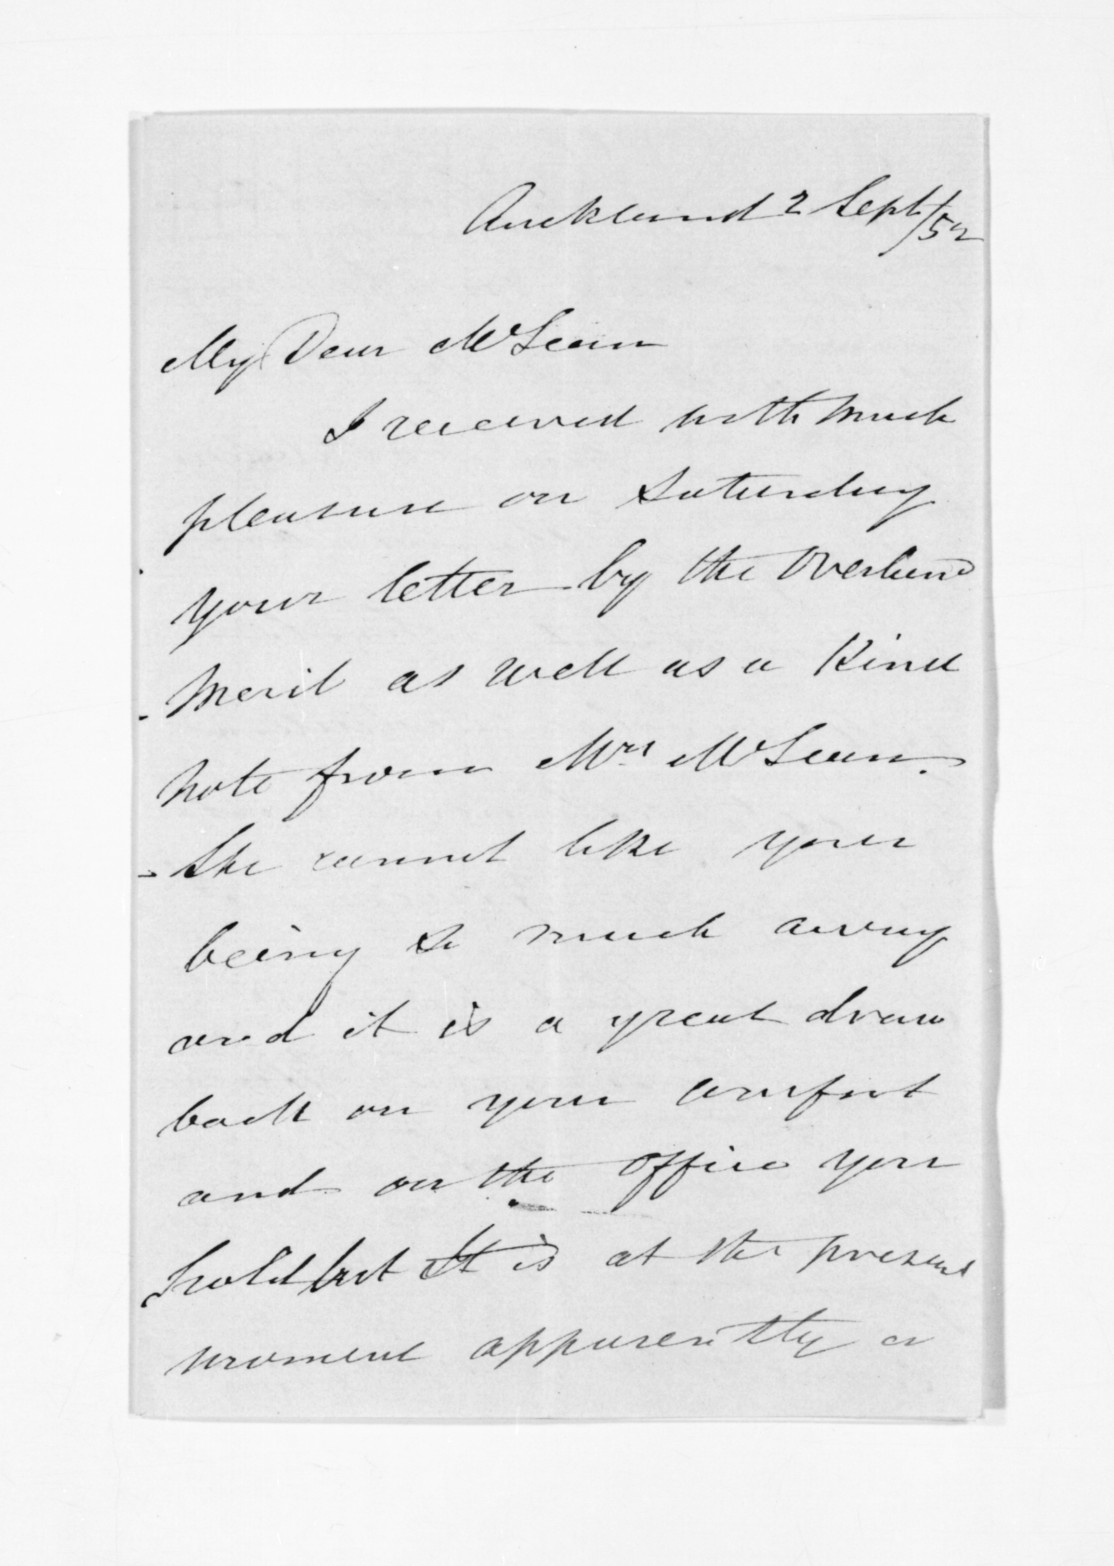 Auckland 2 Sept/52
My Dear McLean
I received with much
pleasure on Saturday
your letter by the Overland
Mail as well as a Kind
note from Mrs McLean.
She cannot like your
being so much away
and it is a great draw
back on your comfort
and on the office you
hold but It is at the present
moment apparently a